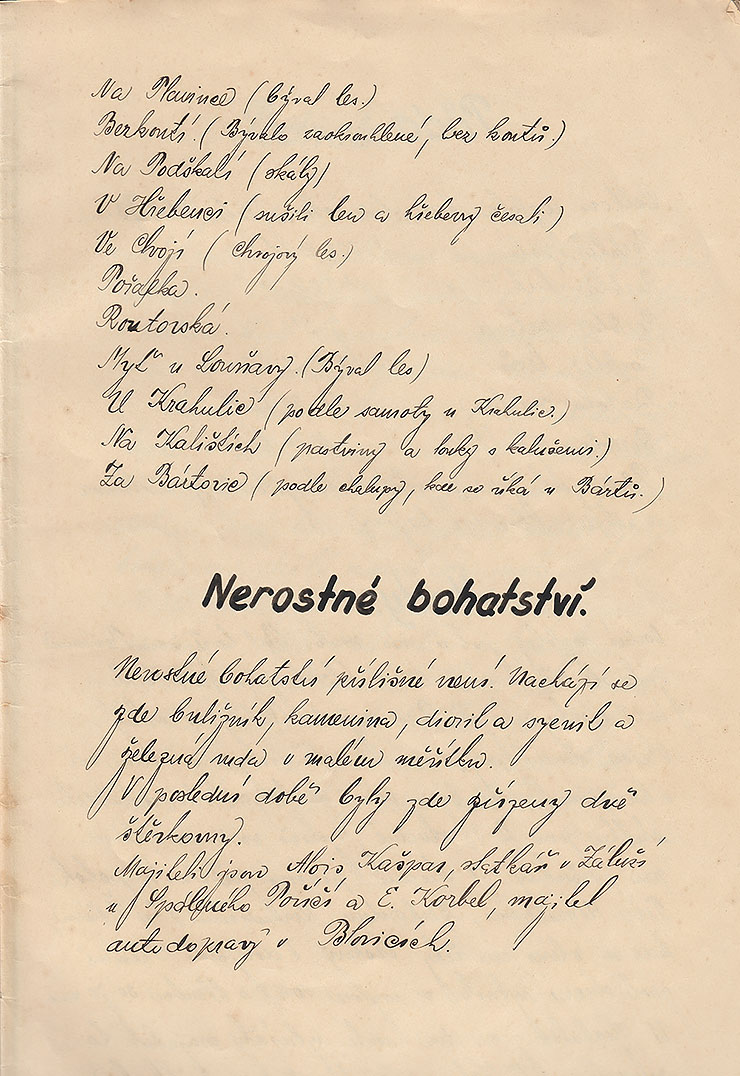 Na Plavince (býval les.)
Berkoutí. (Bývalo zaokrouhlené, bez koutů.)
Na Podškalí (skály)
V Hřebenci (sušili len a hřebeny česali)
Ve Chvojí (Chvojový les.)
Pořalka.
Routorská.
Mýť u Louňavy. (Býval les)
U Krahulic (podle samoty u Krahulic.)
Na Kalištích (pastviny a louky s kalužemi.)
Za Bártovic (podle chalupy, kde se říká u Bártů.)
Nerostné bohatství.
Nerostné bohatství přílišné není. Nachází se
zde buližník, kamenina, diorit a syenit a
železná ruda v malém měřítku.
V poslední době byly zde zřízeny dvě
štěrkovny.
Majiteli jsou Alois Kašpar, statkář v Záluží
u Spáleného Poříčí a E. Korbel, majitel
autodopravy v Blovicích.